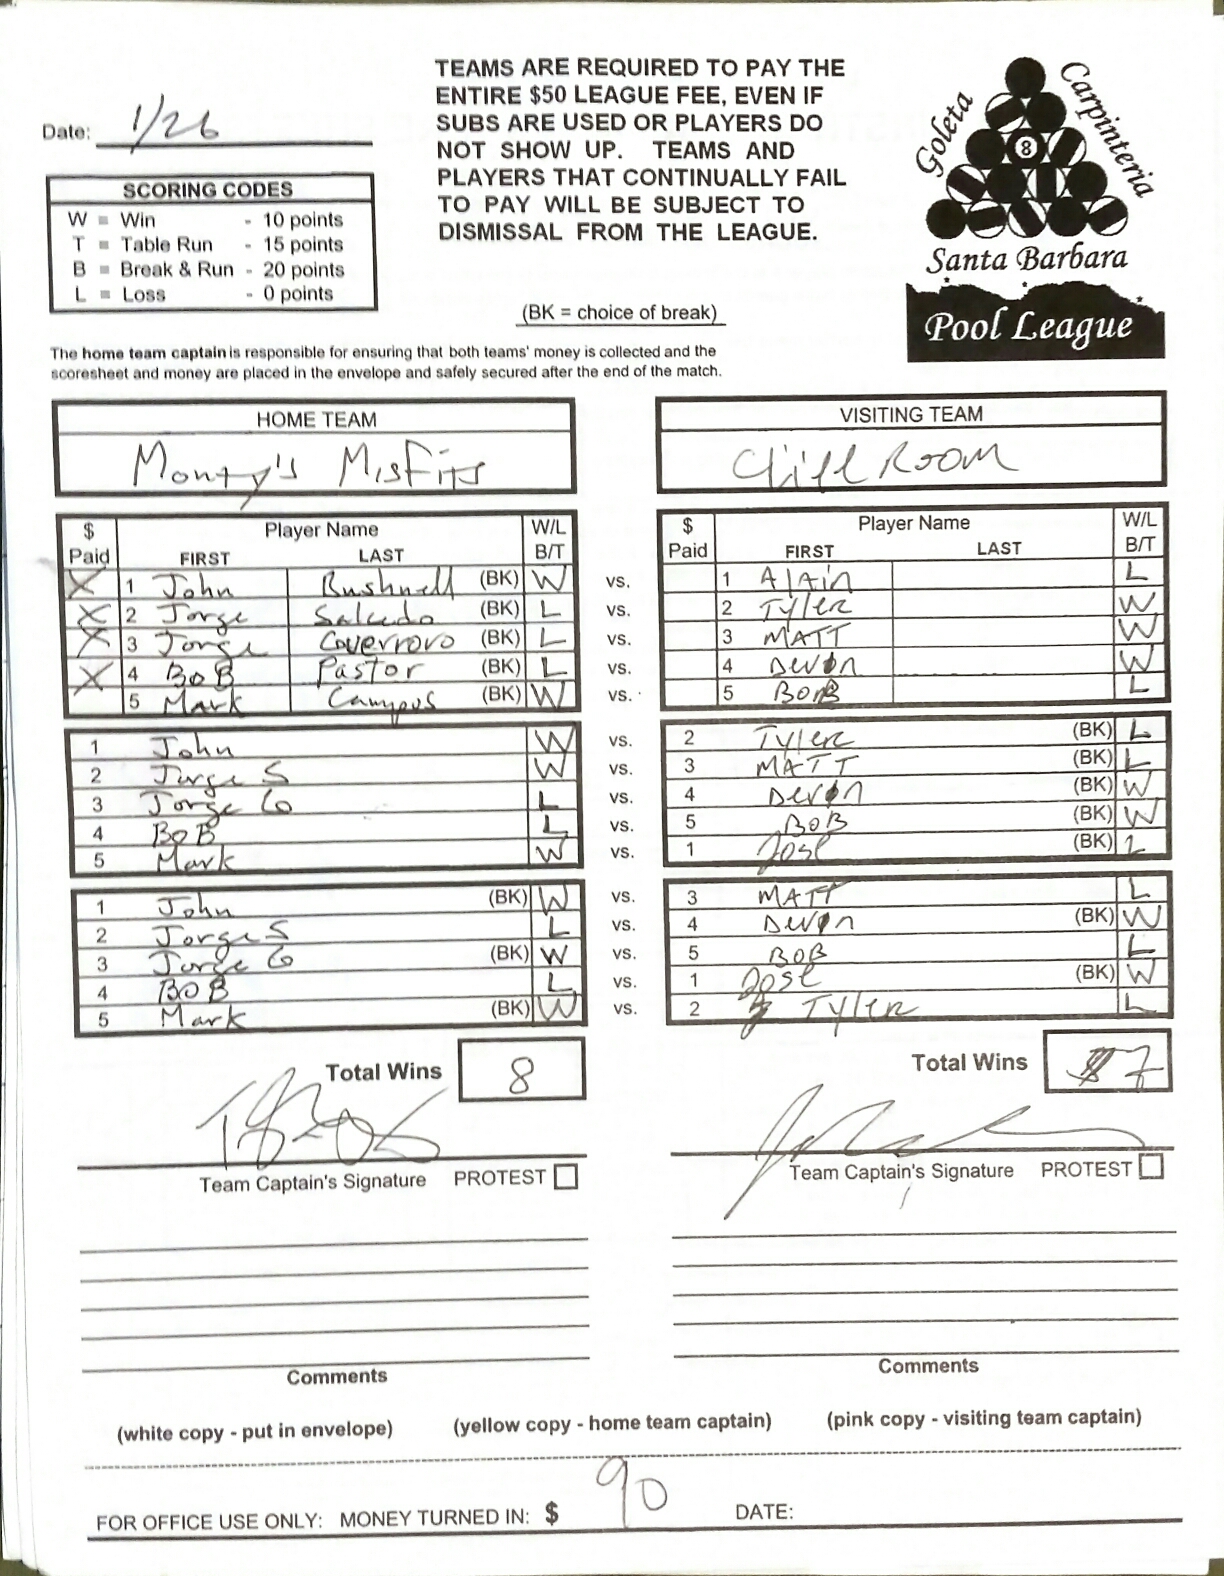 Date: 1/26
TEAMS ARE REQUIRED TO PAY THE
ENTIRE $50 LEAGUE FEE, EVEN IF
SUBS ARE USED OR PLAYERS DO
NOT SHOW UP. TEAMS AND
PLAYERS THAT CONTINUALLY FAIL
TO PAY WILL BE SUBJECT TO
DISMISSAL FROM THE LEAGUE.
Goleta
Carpinteria
8
Santa Barbara
Pool League
SCORING CODES
W = Win - 10 points
T = Table Run - 15 points
B = Break & Run - 20 points
L = Loss - 0 points
(BK = choice of break)
The home team captain is responsible for ensuring that both teams' money is collected and the
scoresheet and money are placed in the envelope and safely secured after the end of the match.
HOME TEAM
Monty's Misfits
VISITING TEAM
Cliff Room
$ Paid Player Name FIRST LAST W/L B/T
$ Paid Player Name FIRST LAST W/L B/T
X 1 John Bushnell (BK) W vs. 1 Alain L
X 2 Jorge Salcedo (BK) L vs. 2 Tyler W
X 3 Jorge (BK) L vs. 3 MATT W
X 4 BOB Pastor (BK) L vs. 4 Devon W
5 Mark Campos (BK) W vs. 5 BOB L
1 John W vs. 2 Tyler (BK) L
2 Jorge S W vs. 3 MATT (BK) L
3 Jorge Co L vs. 4 Devon (BK) W
4 BOB L vs. 5 BOB (BK) W
5 Mark W vs. 1 Jose (BK) L
1 John (BK) W vs. 3 MATT L
2 Jorge S L vs. 4 Devon (BK) W
3 Jorge Co (BK) W vs. 5 BOB L
4 BOB L vs. 1 Jose (BK) W
5 Mark (BK) W vs. 2 Tyler L
Total Wins 8
Total Wins 7
Team Captain's Signature PROTEST
Team Captain's Signature PROTEST
Comments
Comments
(white copy - put in envelope) (yellow copy - home team captain) (pink copy - visiting team captain)
FOR OFFICE USE ONLY: MONEY TURNED IN: $ 90 DATE: